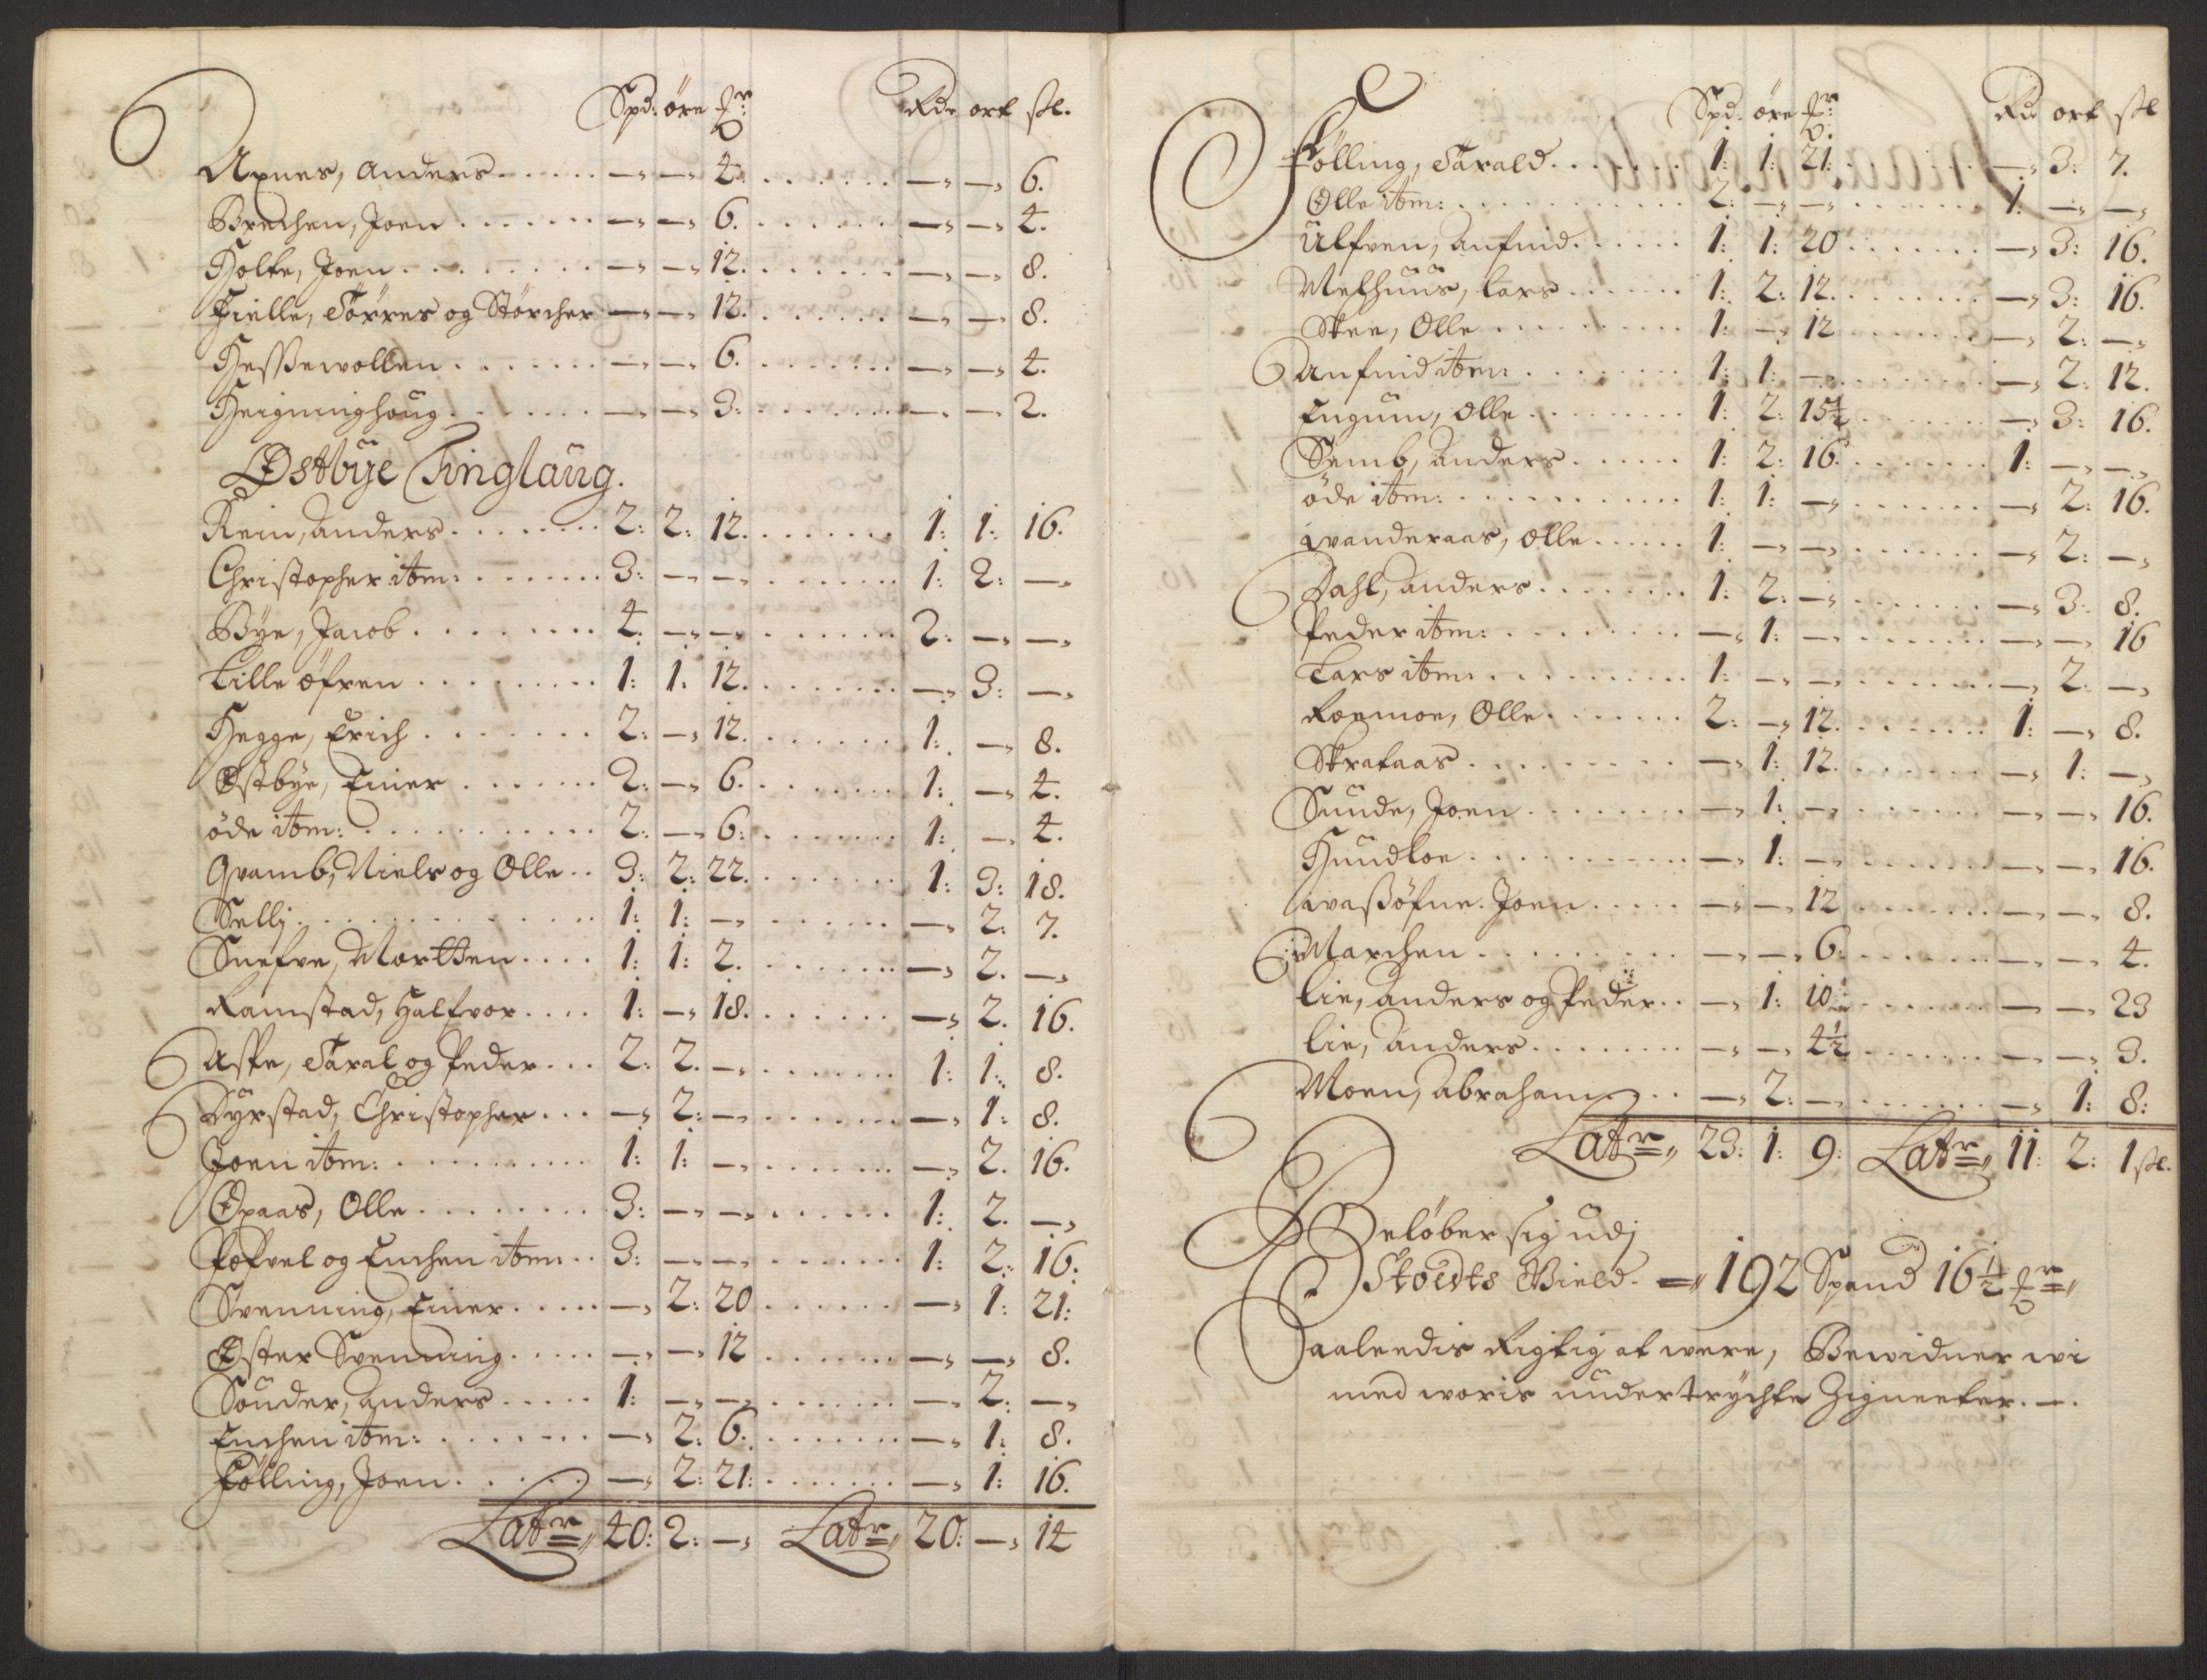 Spd: öre
Rdr ort sk.
Axnes, Anders . . . . . — — 4. . . . . . . — — 6.
Brechen, Joen . . . . . — — 6. . . . . . . — — 4.
Holte, Joen . . . . . — — 12. . . . . . . — — 8.
Hielle, Törres og Störcher — — 12. . . . . . . — — 8.
Hesßewollen . . . . . — — 6. . . . . . . — — 4.
Heigninghoug . . . . . — — 3: . . . . . . — — 2.
Østbye Tinglaug.
Rein, Anders . . . . . 2: 2: 12. . . . . . . 1: 1: 16.
Christopher itm: . . . . . 3: — — . . . . . . 1: 2: —
Bye, Jacob . . . . . 4. — — . . . . . . 2: — —
Lille öfren . . . . . 1: 1: 12. . . . . . . — 3: —
Hegge, Erich . . . . . 2: — 12. . . . . . . 1: — 8.
Østbye, Einer . . . . . 2: — 6. . . . . . . 1: — 4.
öde itm: . . . . . 2: — 6: . . . . . . 1: — 4.
Qvamb, Niels og Olle . . 3: 2: 22. . . . . . . 1: 3: 18.
Sellj . . . . . 1: 1: — . . . . . . — 2: 7.
Snefve, Mortten . . . . 1: 1: 2. . . . . . . — 2. —
Ramstad, Halfvor . . . . 1: — 18. . . . . . . — 2. 16.
Aspe, Taral og Peder . . . 2: 2. — . . . . . . 1: 1: 8.
Dyrstad, Christopher . . . — 2: — . . . . . . — 1: 8.
Joen itm: . . . . . 1: 1: — . . . . . . — 2. 16.
Opaas, Olle . . . . . 3: — — . . . . . . 1: 2. —
Pofvel og Enchen itm: . . 3: — — . . . . . . 1: 2: 16.
Svenning, Einer . . . . . — 2: 20 . . . . . . — 1: 21:
Øster Svenning . . . . . — — 12 . . . . . . — — 8.
Sonder, Anders . . . . . 1: — — . . . . . . — 2: —
Enchen itm: . . . . . — 2: 6: . . . . . . — 1: 8.
Fölling, Joen . . . . . — 2: 21: . . . . . . — 1: 16.
Latr 40: 2: — Latr 20: — 14
Spd: öre
Rd ort sk
Fölling, Tarald . . . . . 1: 1: 21. . . . . . . — 3: 7.
Olle itm: . . . . . 2: — — . . . . . . 1: — —
Ulfven, Anfind . . . . . 1: 1: 20 . . . . . . — 3: 16.
Melhuus, Lars . . . . . 1: 2: 12. . . . . . . — 3: 16.
Skee, Olle . . . . . 1: — 12 . . . . . . — 2: —
Anfind itm: . . . . . 1: 1: — . . . . . . — 2: 12.
Engum, Olle . . . . . 1: 2: 15½ . . . . . . — 3: 16.
Semb, Anders . . . . . 1: 2: 16. . . . . . . 1: — —
öde itm: . . . . . 1: 1: — . . . . . . — 2: 16.
Qvanderaas, Olle . . . . . 1: — — . . . . . . — 2: —
Dahl, Anders . . . . . 1: 2: — . . . . . . — 3: 8.
Peder itm: . . . . . — 1: — . . . . . . — — 16
Lars itm: . . . . . 1: — — . . . . . . — 2: —
Roemoe, Olle . . . . . 2: — 12. . . . . . . 1: — 8.
Skrataas . . . . . — 1: 12. . . . . . . — 1: —
Sunde, Joen . . . . . — 1: — . . . . . . — — 16.
Hundloe . . . . . — 1: — . . . . . . — — 16.
Qvaßöfne. Joen . . . . . — — 12 . . . . . . — — 8.
Marchen . . . . . — — 6: . . . . . . — — 4.
Lie, Anders og Peder . . — 1: 10½ . . . . . . — — 23
Lie, Anders . . . . . — — 4½ . . . . . . — — 3.
Moen, Abraham . . — 2: — . . . . . . — 1: 8:
Latr 23: 1: 9: Latr 11: 2: 1 sk.
Beløber sig udj
Stoedts Gield. — 192 Spand 16½
Saaleedis Rigtig at were, Bewidner wi
med woris undertrychte Zigneeter. —.